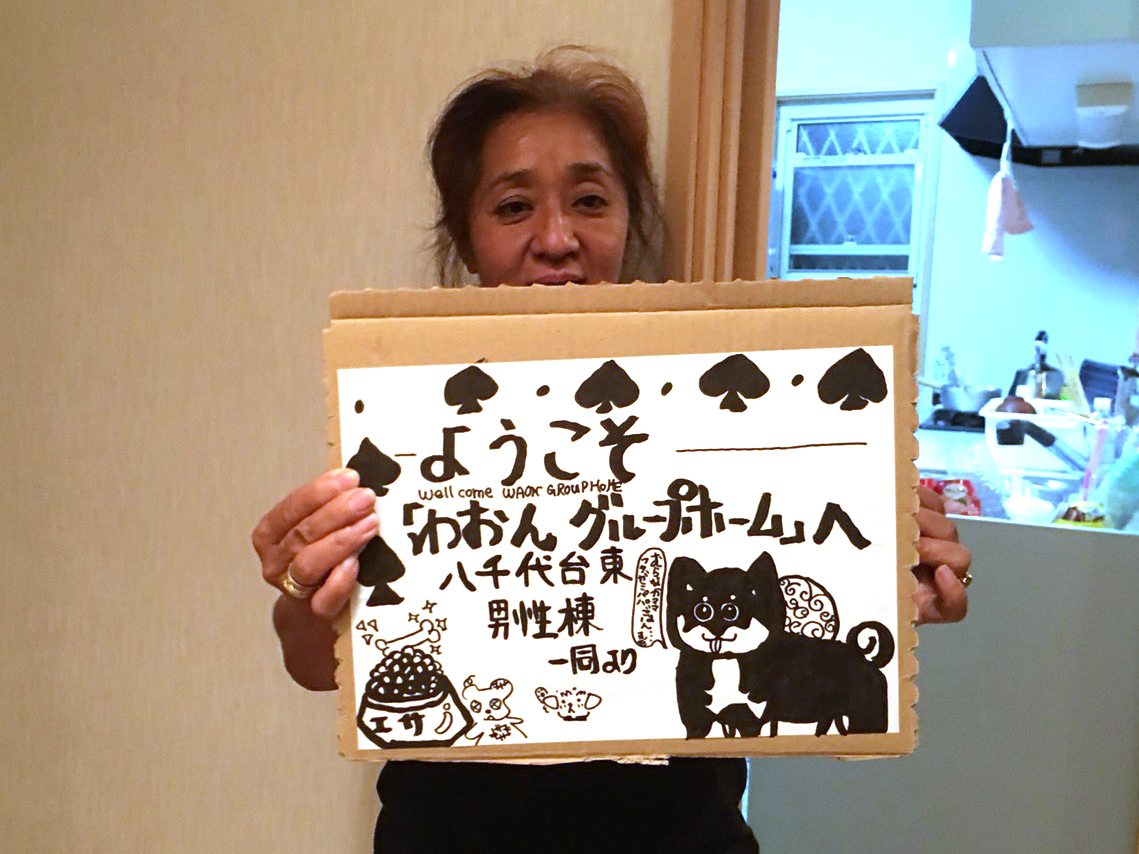 ようこそ
Well come WAON GROUPHOME
「わおん グループホーム」へ
八千代台東
男性棟
一同より
エサ